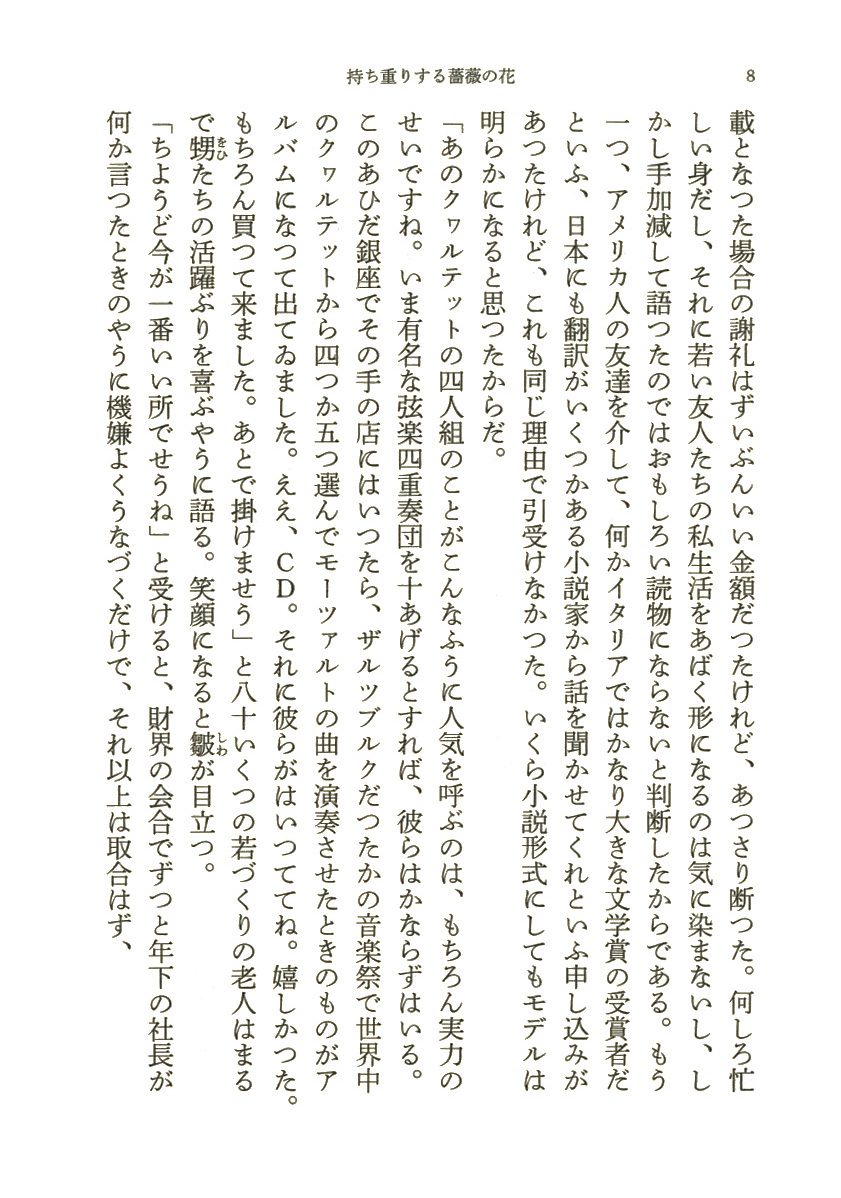 持ち重りする薔薇の花
8
載となつた場合の謝礼はずいぶんいい金額だつたけれど、あつさり断つた。何しろ忙
しい身だし、それに若い友人たちの私生活をあばく形になるのは気に染まないし、し
かし手加減して語つたのではおもしろい読物にならないと判断したからである。もう
一つ、アメリカ人の友達を介して、何かイタリアではかなり大きな文学賞の受賞者だ
といふ、日本にも翻訳がいくつかある小説家から話を聞かせてくれといふ申し込みが
あつたけれど、これも同じ理由で引受けなかつた。いくら小説形式にしてもモデルは
明らかになると思つたからだ。
「あのクヮルテットの四人組のことがこんなふうに人気を呼ぶのは、もちろん実力の
せいですね。いま有名な弦楽四重奏団を十あげるとすれば、彼らはかならずはいる。
このあひだ銀座でその手の店にはいつたら、ザルツブルクだつたかの音楽祭で世界中
のクヮルテットから四つか五つ選んでモーツァルトの曲を演奏させたときのものがア
ルバムになつて出てゐました。ええ、CD。それに彼らがはいつててね。嬉しかつた。
もちろん買つて来ました。あとで掛けませう」と八十いくつの若づくりの老人はまる
で甥たちの活躍ぶりを喜ぶやうに語る。笑顔になると皺が目立つ。
「ちようど今が一番いい所でせうね」と受けると、財界の会合でずつと年下の社長が
何か言つたときのやうに機嫌よくうなづくだけで、それ以上は取合はず、